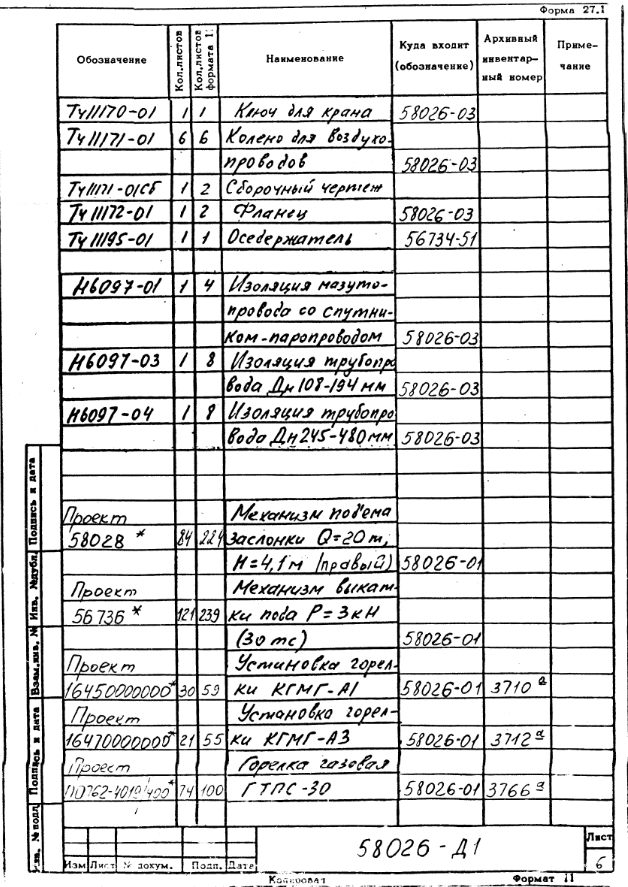 Форма 27.1
Обозначение Кол.листов Кол.листов формата 11 Наименование Куда входит (обозначение) Архивный инвентарный номер Примечание
Ту11170-01 1 1 Ключ для крана 58026-03
Ту11171-01 6 6 Колено для воздухо-
проводов 58026-03
Ту11171-01СБ 1 2 Сборочный чертеж
Ту11172-01 1 2 Фланец 58026-03
Ту11195-01 1 1 Оседержатель 56734-51
Н6097-01 1 4 Изоляция мазуто-
провода со спутни-
ком-паропроводом 58026-03
Н6097-03 1 8 Изоляция трубопро
вода Дн 108-194 мм 58026-03
Н6097-04 1 8 Изоляция трубопро
вода Дн 245-480 мм 58026-03
Проект Механизм подъема
58028 * 84 224 заслонки Q=20т,
Н=4,1м (правый) 58026-01
Проект Механизм выкат-
56736 * 121 239 ки пода Р=3кН
(30тс) 58026-01
Проект Установка горел-
16450000000* 30 59 ки КГМГ-А1 58026-01 3710а
Проект Установка горел-
16470000000* 21 55 ки КГМГ-А3 58026-01 3712а
Проект Горелка газовая
74 100 ГТПС-30 58026-01 3766а
Инв. № подл. Подпись и дата Взам.инв. № Инв. №дубл. Подпись и дата
58026-Д1
Лист
6
Изм Лист № докум. Подп. Дата
Копировал Формат 11